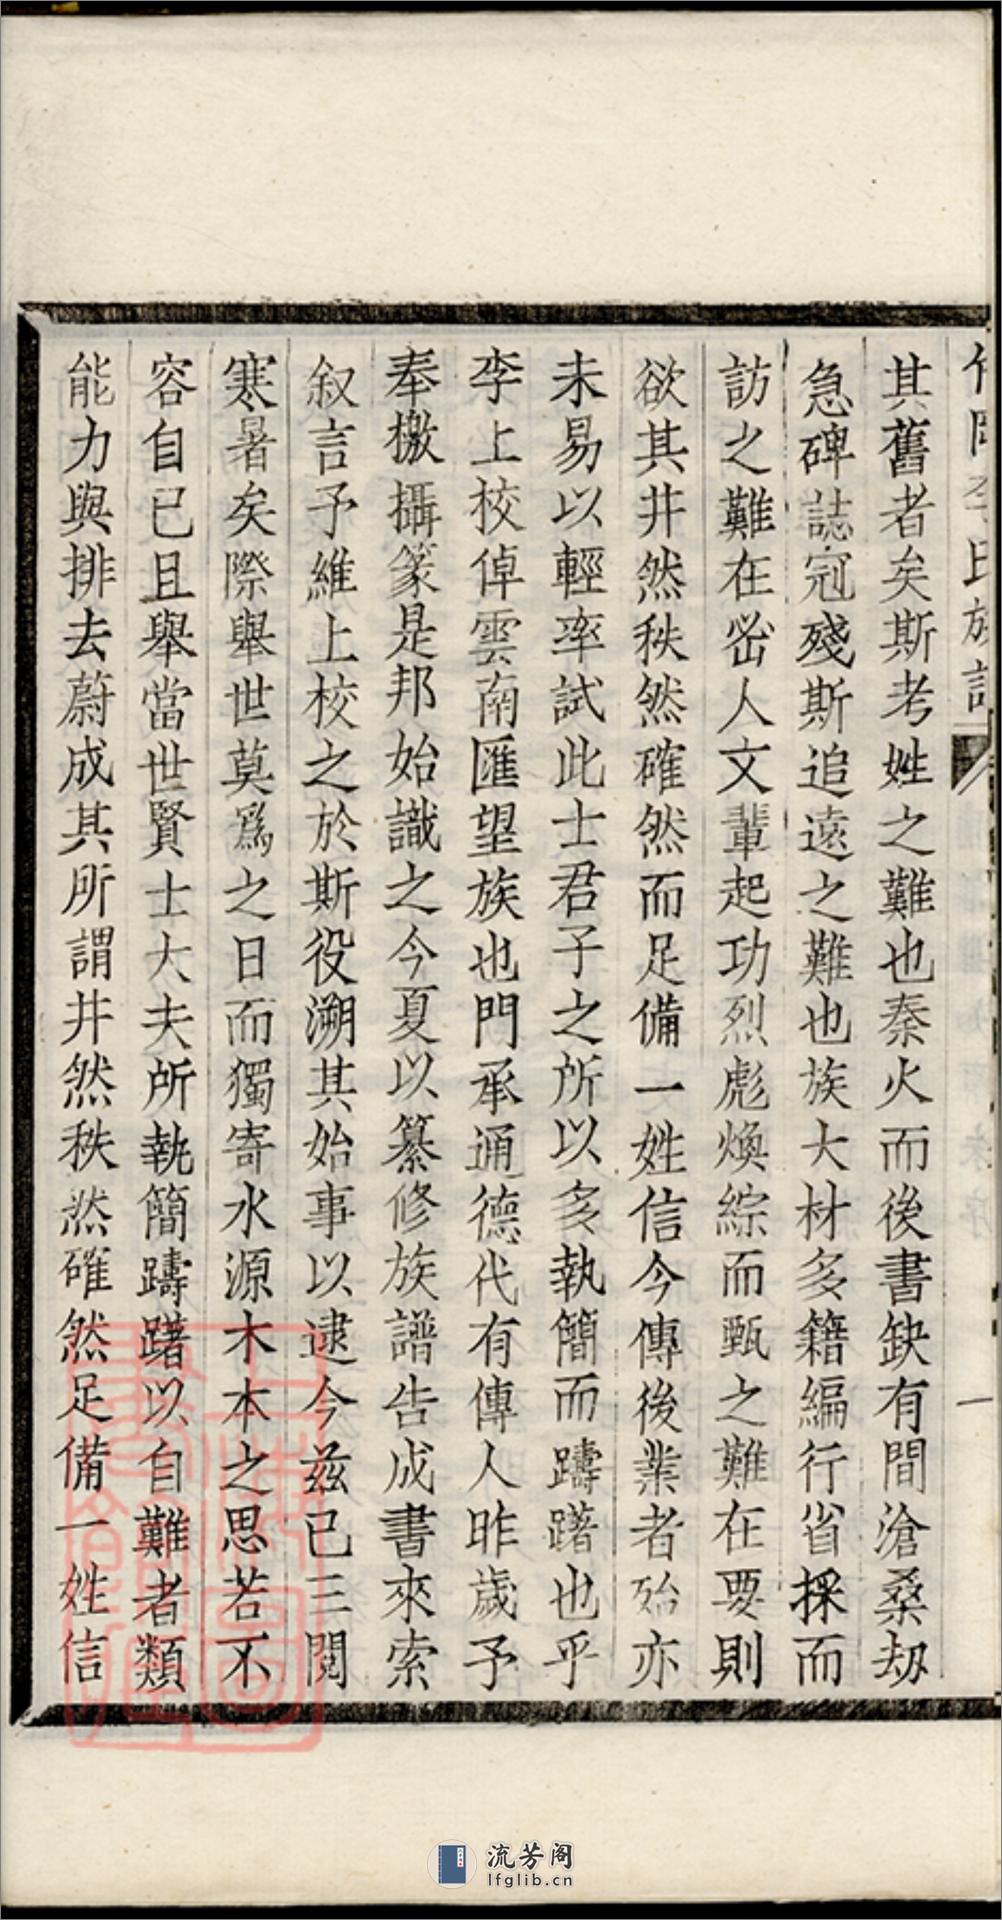 李氏族譜
一
其舊者矣斯考姓之難也秦火而後書缺有間滄桑劫
急碑誌冦殘斯追遠之難也族大材多籍編行省採而
訪之難在密人文輩起功烈彪煥綜而甄之難在要則
欲其井然秩然確然而足備一姓信今傳後業者殆亦
未易以輕率試此士君子之所以多執簡而躊躇也乎
李上校倬雲南匯望族也門承通德代有傳人昨歲予
奉檄攝篆是邦始識之今夏以纂修族譜告成書來索
叙言予維上校之於斯役溯其始事以逮今茲已三閱
寒暑矣際舉世莫爲之日而獨寄水源木本之思若不
容自已且舉當世賢士大夫所執簡躊躇以自難者類
能力與排去蔚成其所謂井然秩然確然足備一姓信
流芳阁
lfglib.cn